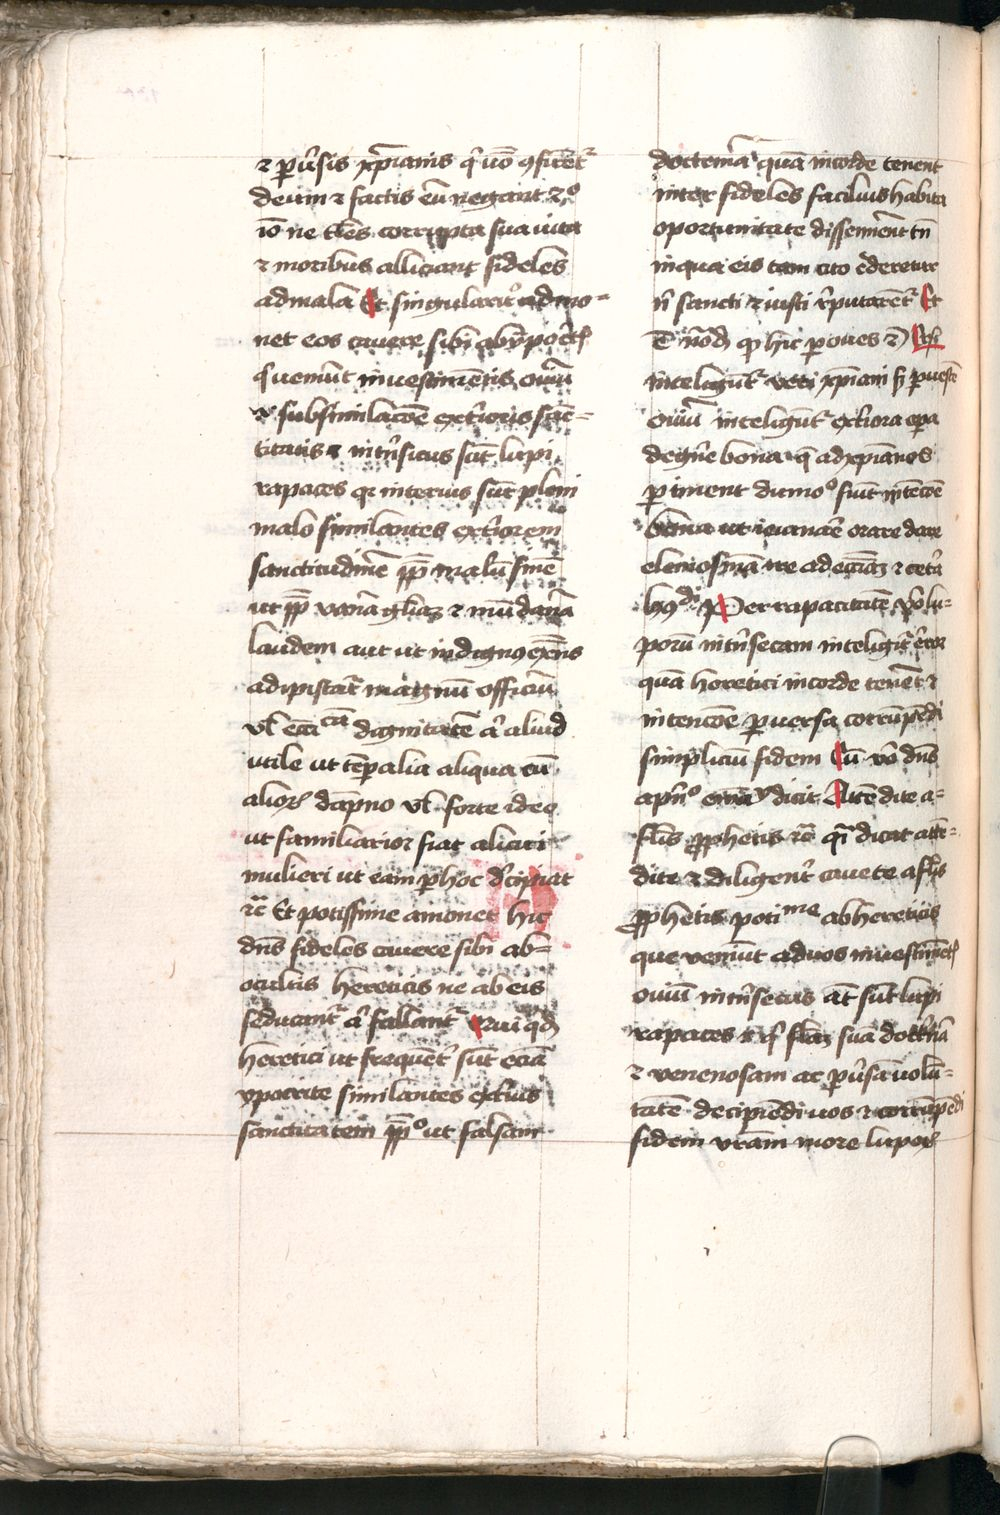 ⁊ ꝑu̅sis xp̅ianis qͥ uo̅ ꝯfite̅tͬ
deum ⁊ factis eu̅ negant ⁊ͨº
io̅ ne tl̅es corrupta sua uita
⁊ moribus alliciant fideles
ad mala Et singularitº admo-
net eos cavere sibi ab ypoc̅tꝭ
qͥ veniu̅t in vestime̅tis oviu̅
.i. sub similac̅oe ext̓ioris sa̅c-
titatis ⁊ int̓nsicus su̅t lupi
rapaces qꝛ interius su̅t pleni
malo similantes ext̓iorem
sanctitudine̅ ꝓpt̅ malu̅ fine̅
ut ꝓpt̅ vana̅ gl̅iaꝫ ⁊ mu̅dana̅
laudem aut ut indignꝯ exn̅s
adipiscatͬ magnu̅ officiu̅
vl̅ ecciͨᵃ̅ dignitate̅ aͥ aliud
utile ut te̅ꝑalia aliqua cu̅
alioꝝ da̅pno vl̅ forte ideo
ut familiarior fiat alicui
mulieri ut eam ꝑ hoc d̓cipiat
⁊c̅ Et potissime amonet hic
dn̅s fideles cavere sibi ab-
ocultis hereticis ne ab eis
seducantͬ aͥ fallantͬ
heretici ut freque̅t̓ su̅t ecia̅
ypocrite similantes ext̓ius
sanctitatem ꝓpt̅º ut falsam
doctrina̅ qua̅ in corde tenent
inter fideles facilius habita
oportunitate disseminent tn̅
in qua eis tam cito c̓deretur
n̅ sancti ⁊ iusti r̓putarentͬ Et

inteligu̅tͬ veri xp̅iani sꝫ ꝑ veste̅
oviu̅ inteligu̅tͬ ext̓iora oꝑa
de gn̅e bona q̅ ad xp̅ianos
ꝑtinent dumoº fiu̅t inte̅coe̅
bona ut ieiunare orare dare
elemosina̅ ire ad eccia̅ꝫ ⁊ cet̓a
hꝯͫᵈⁱ Per rapacitate̅ v̓o lu-
poru̅ int̓nsecam inteligitͬ error
qua̅ heretici in corde tene̅t ⁊
inte̅coe̅ ꝑversa corru̅pe̅di
simpliciu̅ fidem Cu̅ v̓o dn̅s
dicit Atte̅dite a-
fl̅is ꝓphetis ⁊c̅ qͣ̅ dicat atte̅-
dite ⁊ diligent̓ cavete a fl̅is
ꝓphetis potiᵐᵉ ab hereticis
que veniu̅t ad vos in vestime̅tꝭ
oviu̅ int̓nsecus at̅ su̅t lupi
rapaces ⁊ ꝑ fl̅aꝫ sua̅ doct̓na̅
⁊ venenosam ac ꝑu̓sa̅ volu̅-
tate̅ decipie̅di vos ⁊ corru̅pe̅di
fidem vr̅am more lupoꝝ